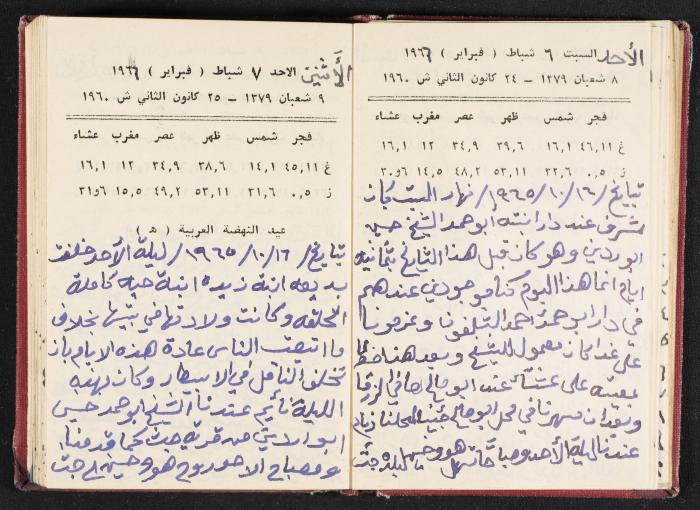 الأحد السبت ٦ شباط ( فبراير ) ١٩٦٦
٨ شعبان ١٣٧٩ – ٢٤ كانون الثاني ش ١٩٦٠
فجر شمس ظهر عصر مغرب عشاء
غ ٤٦,١١ ١٦,١ ٣٩,٦ ٣٤,٩ ١٢ ١٦,١
ز ٠,٥ ٣٢,٦ ٥٣,١١ ٤٨,٢ ١٤,٥ ٣٠و٦
بتاريخ /١٦/ ١٠/ ١٩٦٥/ نهار السبت كان
مشرف عند دار ابنته ابو حمد الشيخ حسين
ابوردين وهو كان قبل هذا التاريخ بثمانية
ايام انما هذا اليوم كنا موجودين عندهم
في دار ابو حمد احمد التلفون وعزمونا
على غدا كان معمول للشيخ وبعد هنا
على عشاء عند ابو صالح
وبعد ان سهرنا في محل ابو صالح
عندنا ليلة الأحد وصباحا هو
الأثنين الاحد ٧ شباط ( فبراير ) ١٩٦٦
٩ شعبان ١٣٧٩ – ٢٥ كانون الثاني ش ١٩٦٠
فجر شمس ظهر عصر مغرب عشاء
غ ٤٥,١١ ١٤,١ ٣٨,٦ ٣٤,٩ ١٢ ١٦,١
ز ٠,٥ ٣١,٦ ٥٣,١١ ٤٩,٢ ١٥,٥ ٣١و٦
عيد النهضة العربية ( ه )
بتاريخ / ١٦/ ١٠/ ١٩٦٥/ ليلة الأحد خلفت
بديعه ابنة زيده ابنة حيه كاملة
الخلقه وكانت ولادتها في بيتها بخلاف
ما اتبعت الناس عادة هذه الايام بان
تخلف الناقل في الاسبطار وكان بهذه
الليلة نايم عندنا الشيخ ابو حمد حسين
ابوردين من قرية جت كما قدمنا
وصباح الاحد روح هو وحسين لجت